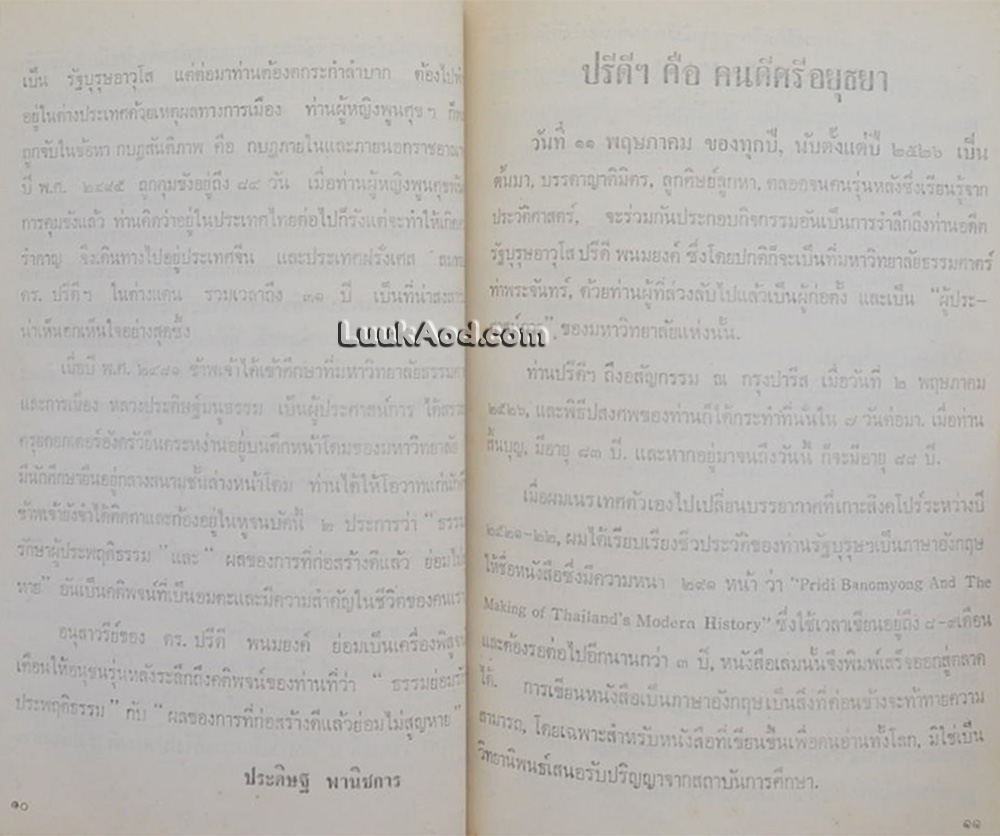 เป็น รัฐบุรุษอาวุโส แต่ต่อมาท่านต้องตกระกำลำบาก ต้องไป
อยู่ในต่างประเทศด้วยเหตุผลทางการเมือง ท่านผู้หญิงพูนศุขฯ
ถูกจับในข้อหา กบฎสันติภาพ คือ กบฎภายในและภายนอกราชอาณา
ปี พ.ศ. ๒๔๙๕ ถูกคุมขังอยู่ถึง ๘๔ วัน เมื่อท่านผู้หญิงพูนศุข
การคุมขังแล้ว ท่านคิดว่าอยู่ในประเทศไทยต่อไปก็รังแต่จะทำให้เกิด
รำคาญ จึงเดินทางไปอยู่ประเทศจีน และประเทศฝรั่งเศส
ดร. ปรีดีฯ ในต่างแดน รวมเวลาถึง ๓๑ ปี เป็นที่น่าสงสาร
น่าเห็นอกเห็นใจอย่างสุดซึ้ง
เมื่อปี พ.ศ. ๒๔๘๑ ข้าพเจ้าได้เข้าศึกษาที่มหาวิทยาลัยธรรม
และการเมือง หลวงประดิษฐ์มนูธรรม เป็นผู้ประศาสน์การ ได้
ครุยดอกเตอร์อังดรัวยืนตระหง่านอยู่บนตึกหน้าโดมของมหาวิทยาลัย
มีนักศึกษายืนอยู่กลางสนามชั้นล่างหน้าโดม ท่านได้ให้โอวาทแก่
ข้าพเจ้ายังจำได้ติดตาและก้องอยู่ในหูจนบัดนี้ ๒ ประการว่า “ ธรรม
รักษาผู้ประพฤติธรรม ” และ “ ผลของการที่ก่อสร้างดีแล้ว ย่อม
หาย” อันเป็นคติพจน์ที่เป็นอมตะและมีความสำคัญในชีวิตของคนเรา
อนุสาวรีย์ของ ดร. ปรีดี พนมยงค์ ย่อมเป็นเครื่อง
เตือนให้อนุชนรุ่นหลังระลึกถึงคติพจน์ของท่านที่ว่า “ ธรรมย่อม
ประพฤติธรรม ” กับ “ ผลของการที่ก่อสร้างดีแล้วย่อมไม่สูญหาย”
ประดิษฐ พานิชการ
๑๐
ปรีดีฯ คือ คนดีศรีอยุธยา
วันที่ ๑๑ พฤษภาคม ของทุกปี, นับตั้งแต่ปี ๒๕๒๖ เป็น
ต้นมา, บรรดาญาติมิตร, ลูกศิษย์ลูกหา, ตลอดจนคนรุ่นหลังซึ่งเรียนรู้จาก
ประวัติศาสตร์, จะร่วมกันประกอบกิจกรรมอันเป็นการรำลึกถึงท่านอดีต
รัฐบุรุษอาวุโส ปรีดี พนมยงค์ ซึ่งโดยปกติก็จะเป็นที่มหาวิทยาลัยธรรมศาสตร์
ท่าพระจันทร์, ด้วยท่านผู้ที่ล่วงลับไปแล้วเป็นผู้ก่อตั้ง และเป็น “ผู้ประ–
ศาสน์การ” ของมหาวิทยาลัยแห่งนั้น.
LuukAod.com
ท่านปรีดีฯ ถึงอสัญกรรม ณ กรุงปารีส เมื่อวันที่ ๒ พฤษภาคม
๒๕๒๖, และพิธีปลงศพของท่านก็ได้กระทำที่นั่นใน ๘ วันต่อมา. เมื่อท่าน
สิ้นบุญ, มีอายุ ๘๓ ปี. และหากอยู่มาจนถึงวันนี้ ก็จะมีอายุ ๘๘ ปี.
เมื่อผมเนรเทศตัวเองไปเปลี่ยนบรรยากาศที่เกาะสิงคโปร์ระหว่างปี
๒๕๒๑-๒๒, ผมได้เรียบเรียงชีวประวัติของท่านรัฐบุรุษฯเป็นภาษาอังกฤษ
ให้ชื่อหนังสือซึ่งมีความหนา ๒๙๑ หน้า ว่า “Pridi Banomyong And The
Making of Thailand's Modern History” ซึ่งใช้เวลาเขียนอยู่ถึง ๘-๙เดือน
และต้องรอต่อไปอีกนานกว่า ๓ ปี, หนังสือเล่มนั้นจึงพิมพ์เสร็จออกสู่ตลาด
ได้. การเขียนหนังสือเป็นภาษาอังกฤษเป็นสิ่งที่ค่อนข้างจะท้าทายความ
สามารถ, โดยเฉพาะสำหรับหนังสือที่เขียนขึ้นเพื่อคนอ่านทั้งโลก, มิใช่เป็น
วิทยานิพนธ์เสนอรับปริญญาจากสถาบันการศึกษา.
๑๑